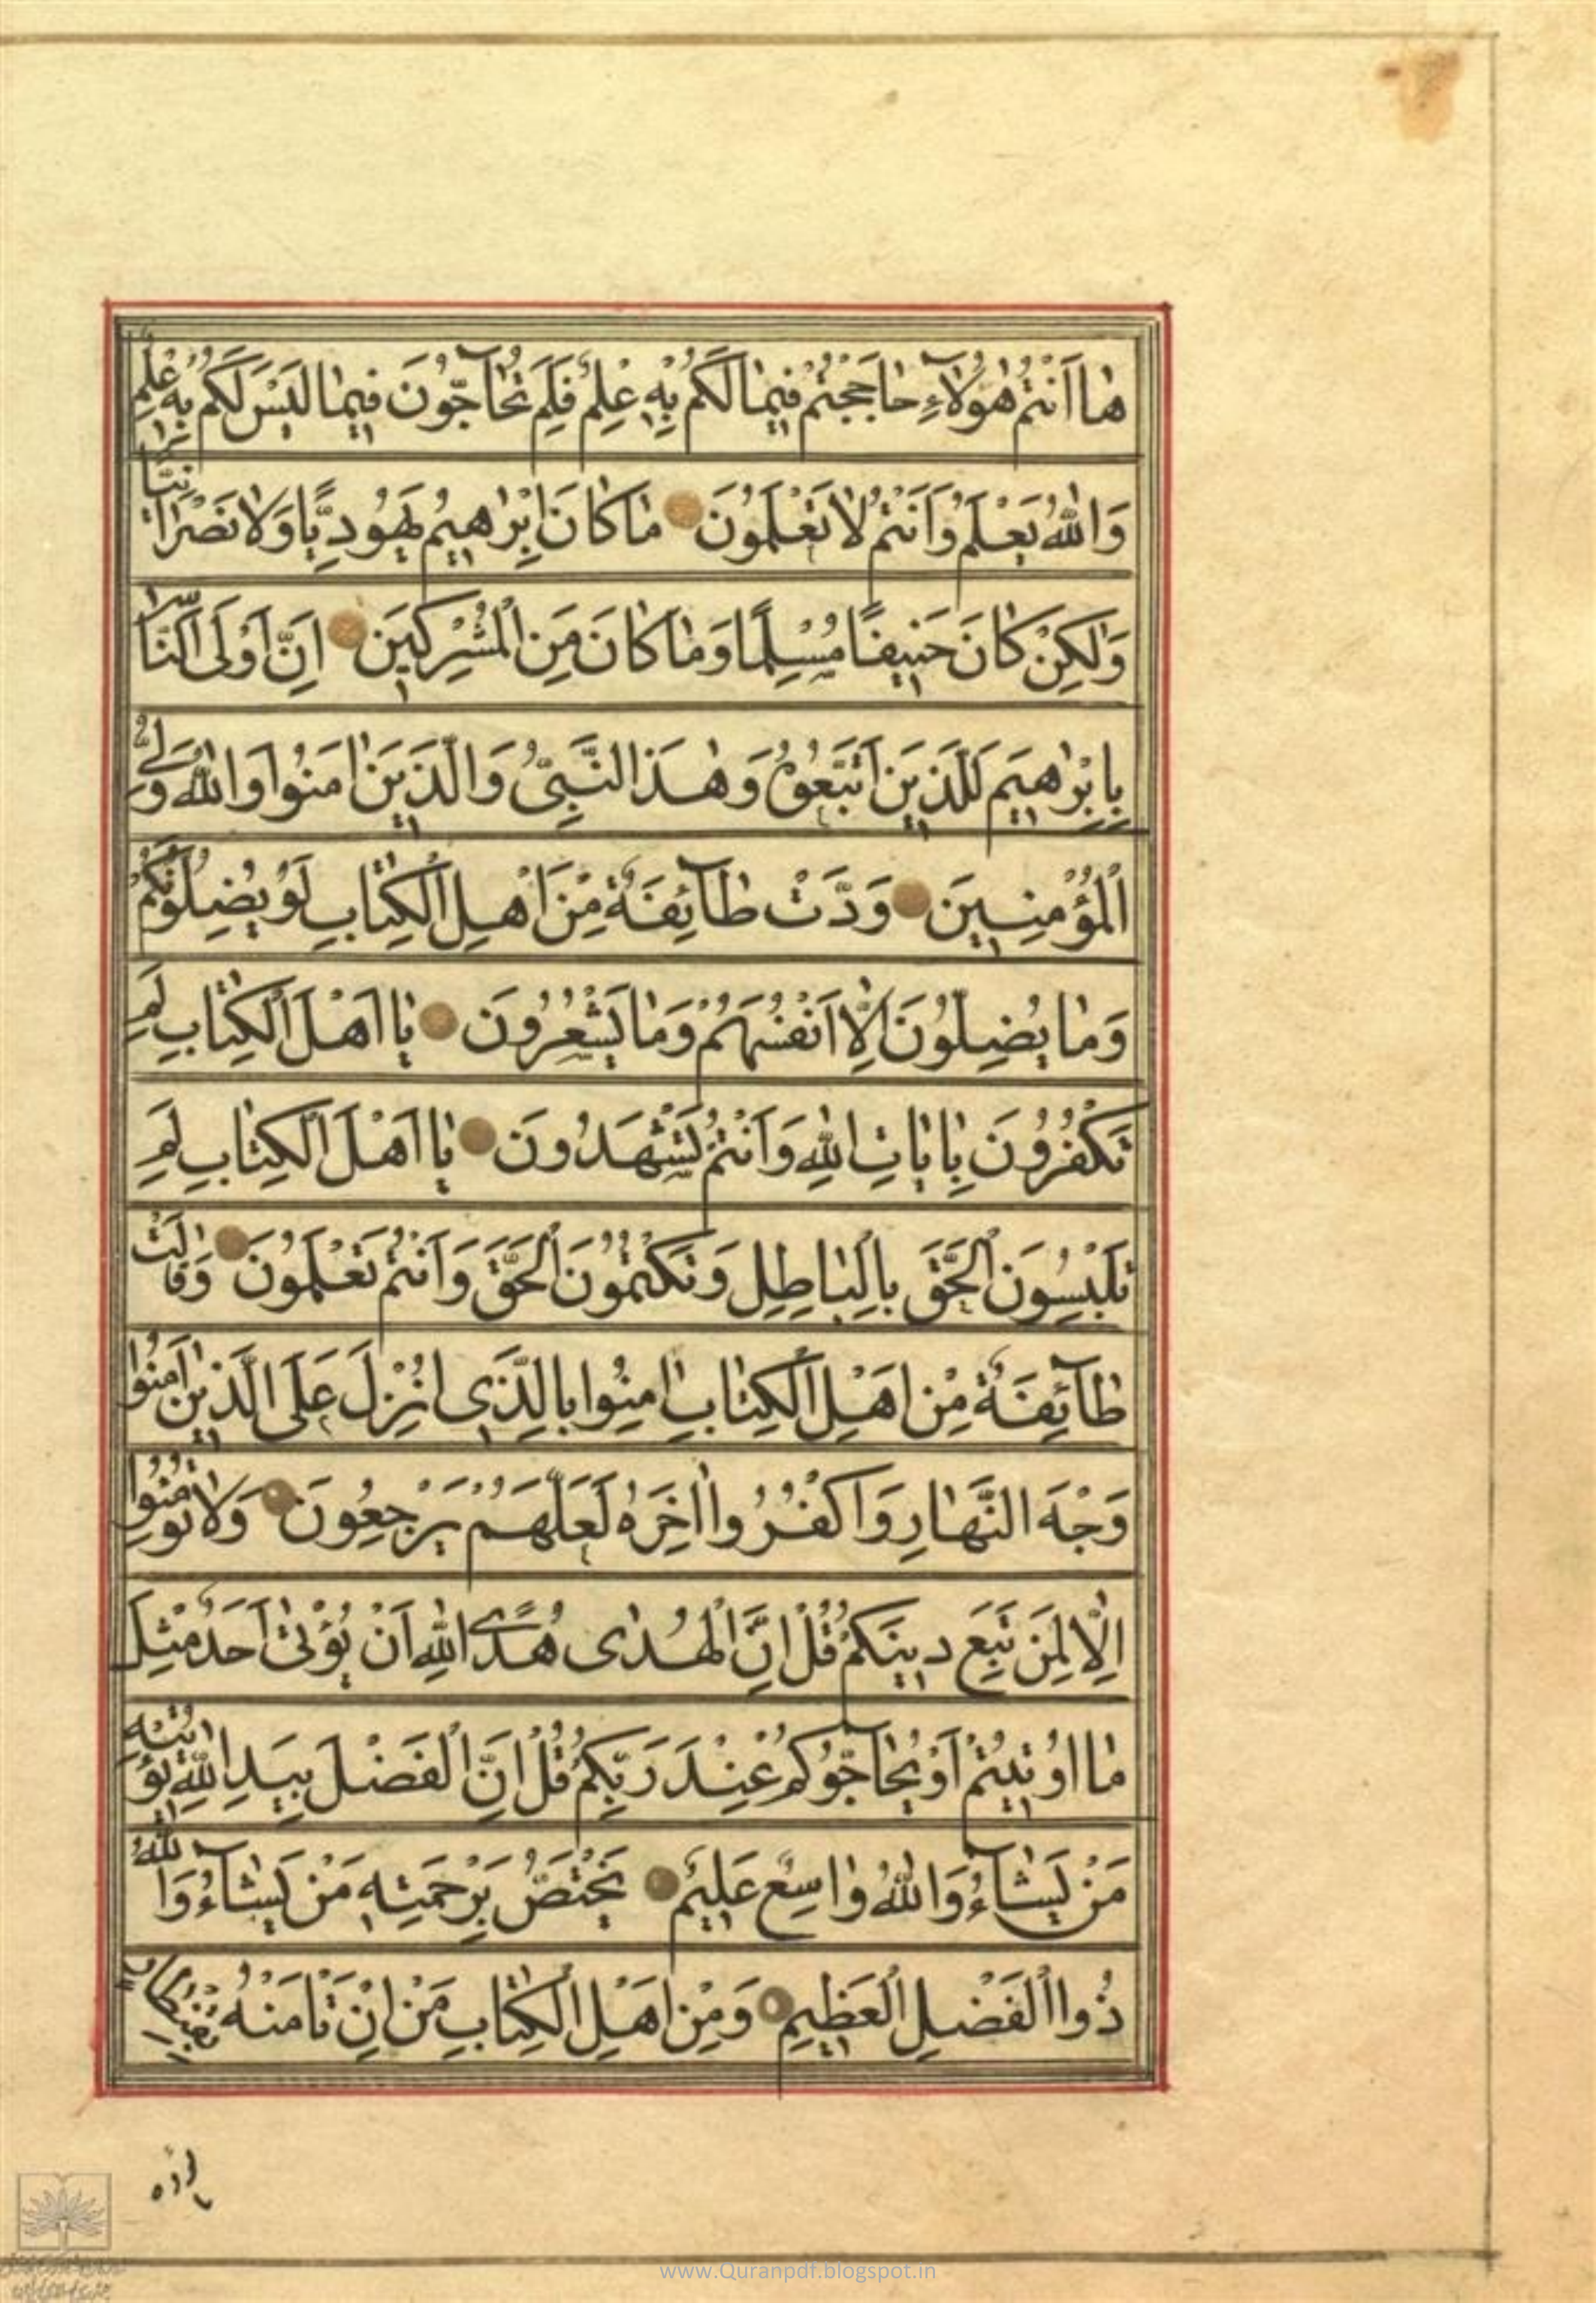 هٰا اَنْتُمْ هٰؤُلَآءِ حٰاجَجْتُمْ فِيمٰا لَكُمْ بِهٖ عِلْمٌ فَلِمَ تُحَآجُّونَ فِيمٰا لَيْسَ لَكُمْ بِهٖ عِلْمٌ
وَاللّٰهُ يَعْلَمُ وَاَنْتُمْ لٰا تَعْلَمُونَ مٰا كٰانَ اِبْرٰاهِيمُ يَهُودِيًّا وَلٰا نَصْرٰانِيًّا
وَلٰكِنْ كٰانَ حَنِيفًا مُسْلِمًا وَمٰا كٰانَ مِنَ الْمُشْرِكِينَ اِنَّ اَوْلَى النَّاسِ
بِاِبْرٰاهِيمَ لَلَّذِينَ اتَّبَعُوهُ وَهٰذَا النَّبِيُّ وَالَّذِينَ اٰمَنُوا وَاللّٰهُ وَلِيُّ
الْمُؤْمِنِينَ وَدَّتْ طَآئِفَةٌ مِنْ اَهْلِ الْكِتٰابِ لَوْ يُضِلُّونَكُمْ
وَمٰا يُضِلُّونَ اِلَّا اَنْفُسَهُمْ وَمٰا يَشْعُرُونَ يٰا اَهْلَ الْكِتٰابِ لِمَ
تَكْفُرُونَ بِاٰيٰاتِ اللّٰهِ وَاَنْتُمْ تَشْهَدُونَ يٰا اَهْلَ الْكِتٰابِ لِمَ
تَلْبِسُونَ الْحَقَّ بِالْبٰاطِلِ وَتَكْتُمُونَ الْحَقَّ وَاَنْتُمْ تَعْلَمُونَ وَقٰالَتْ
طَآئِفَةٌ مِنْ اَهْلِ الْكِتٰابِ اٰمِنُوا بِالَّذِي اُنْزِلَ عَلَى الَّذِينَ اٰمَنُوا
وَجْهَ النَّهٰارِ وَاكْفُرُوا اٰخِرَهُ لَعَلَّهُمْ يَرْجِعُونَ وَلٰا تُؤْمِنُوا
اِلَّا لِمَنْ تَبِعَ دِينَكُمْ قُلْ اِنَّ الْهُدٰى هُدَى اللّٰهِ اَنْ يُؤْتٰى اَحَدٌ مِثْلَ
مٰا اُوتِيتُمْ اَوْ يُحٰآجُّوكُمْ عِنْدَ رَبِّكُمْ قُلْ اِنَّ الْفَضْلَ بِيَدِ اللّٰهِ يُؤْتِيهِ
مَنْ يَشٰآءُ وَاللّٰهُ وٰاسِعٌ عَلِيمٌ يَخْتَصُّ بِرَحْمَتِهٖ مَنْ يَشٰآءُ وَاللّٰهُ
ذُوا الْفَضْلِ الْعَظِيمِ وَمِنْ اَهْلِ الْكِتٰابِ مَنْ اِنْ تَأْمَنْهُ بِقِنْطٰارٍ
www.Quranpdf.blogspot.in